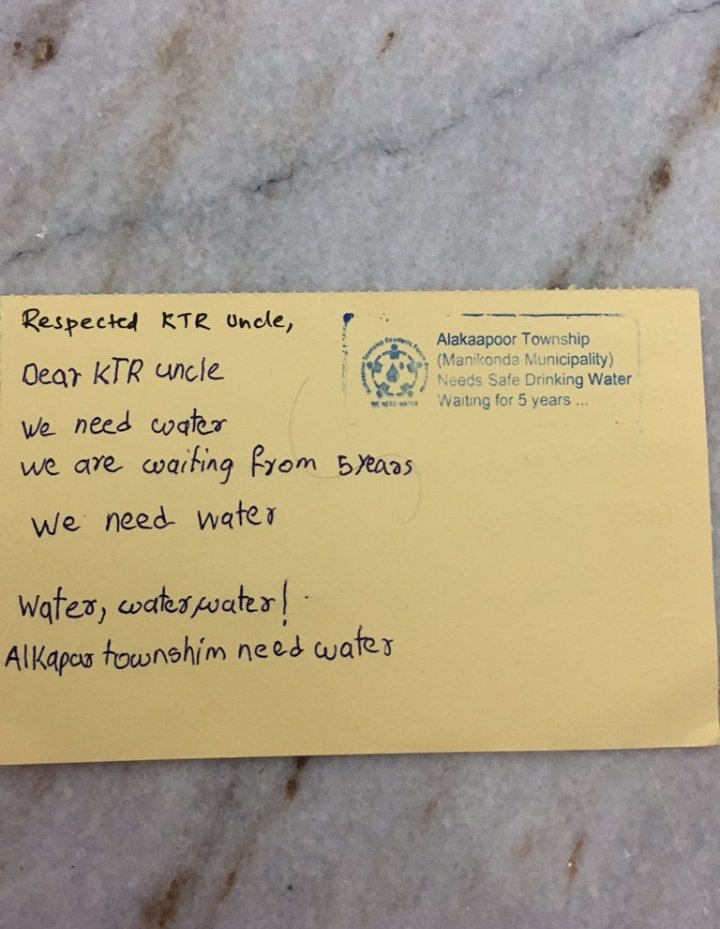 Respected KTR Uncle,
Dear KTR uncle
We need water
we are waiting from 5 years
We need water
Water, water, water!
Alkapar townshim need water
Alakaapoor Township
(Manikonda Municipality)
Needs Safe Drinking Water
Waiting for 5 years ...
WE NEED WATER